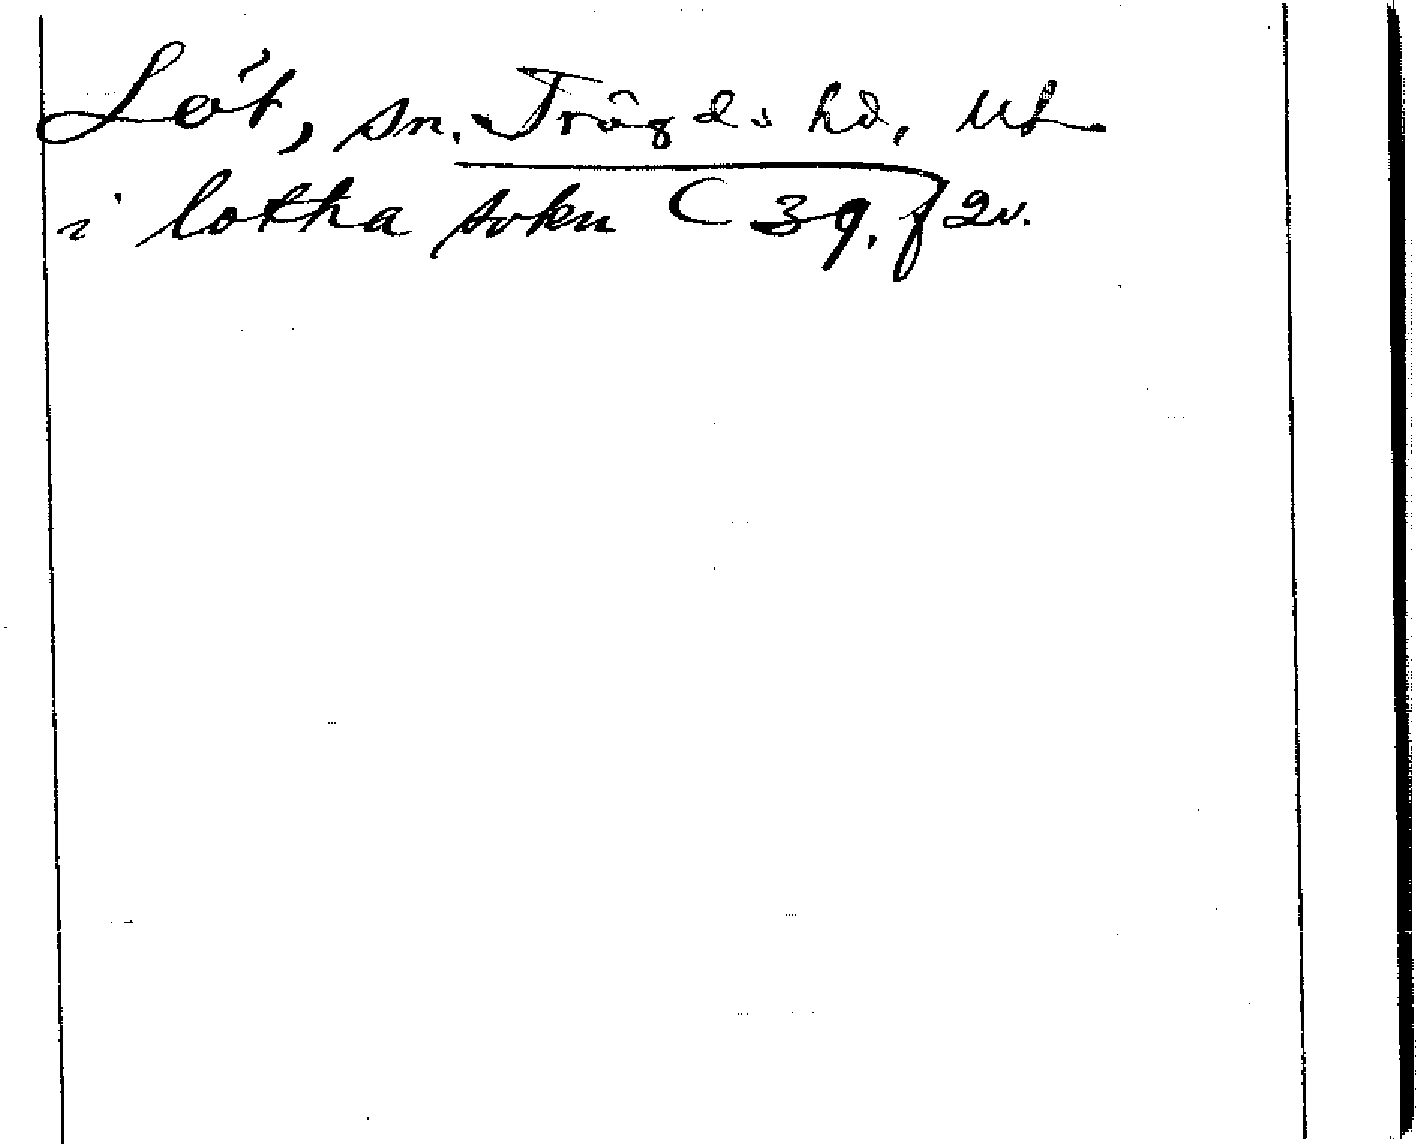 Löt, sn. Trögds hd, Upl
i lotha sokn C 39. f 2v.